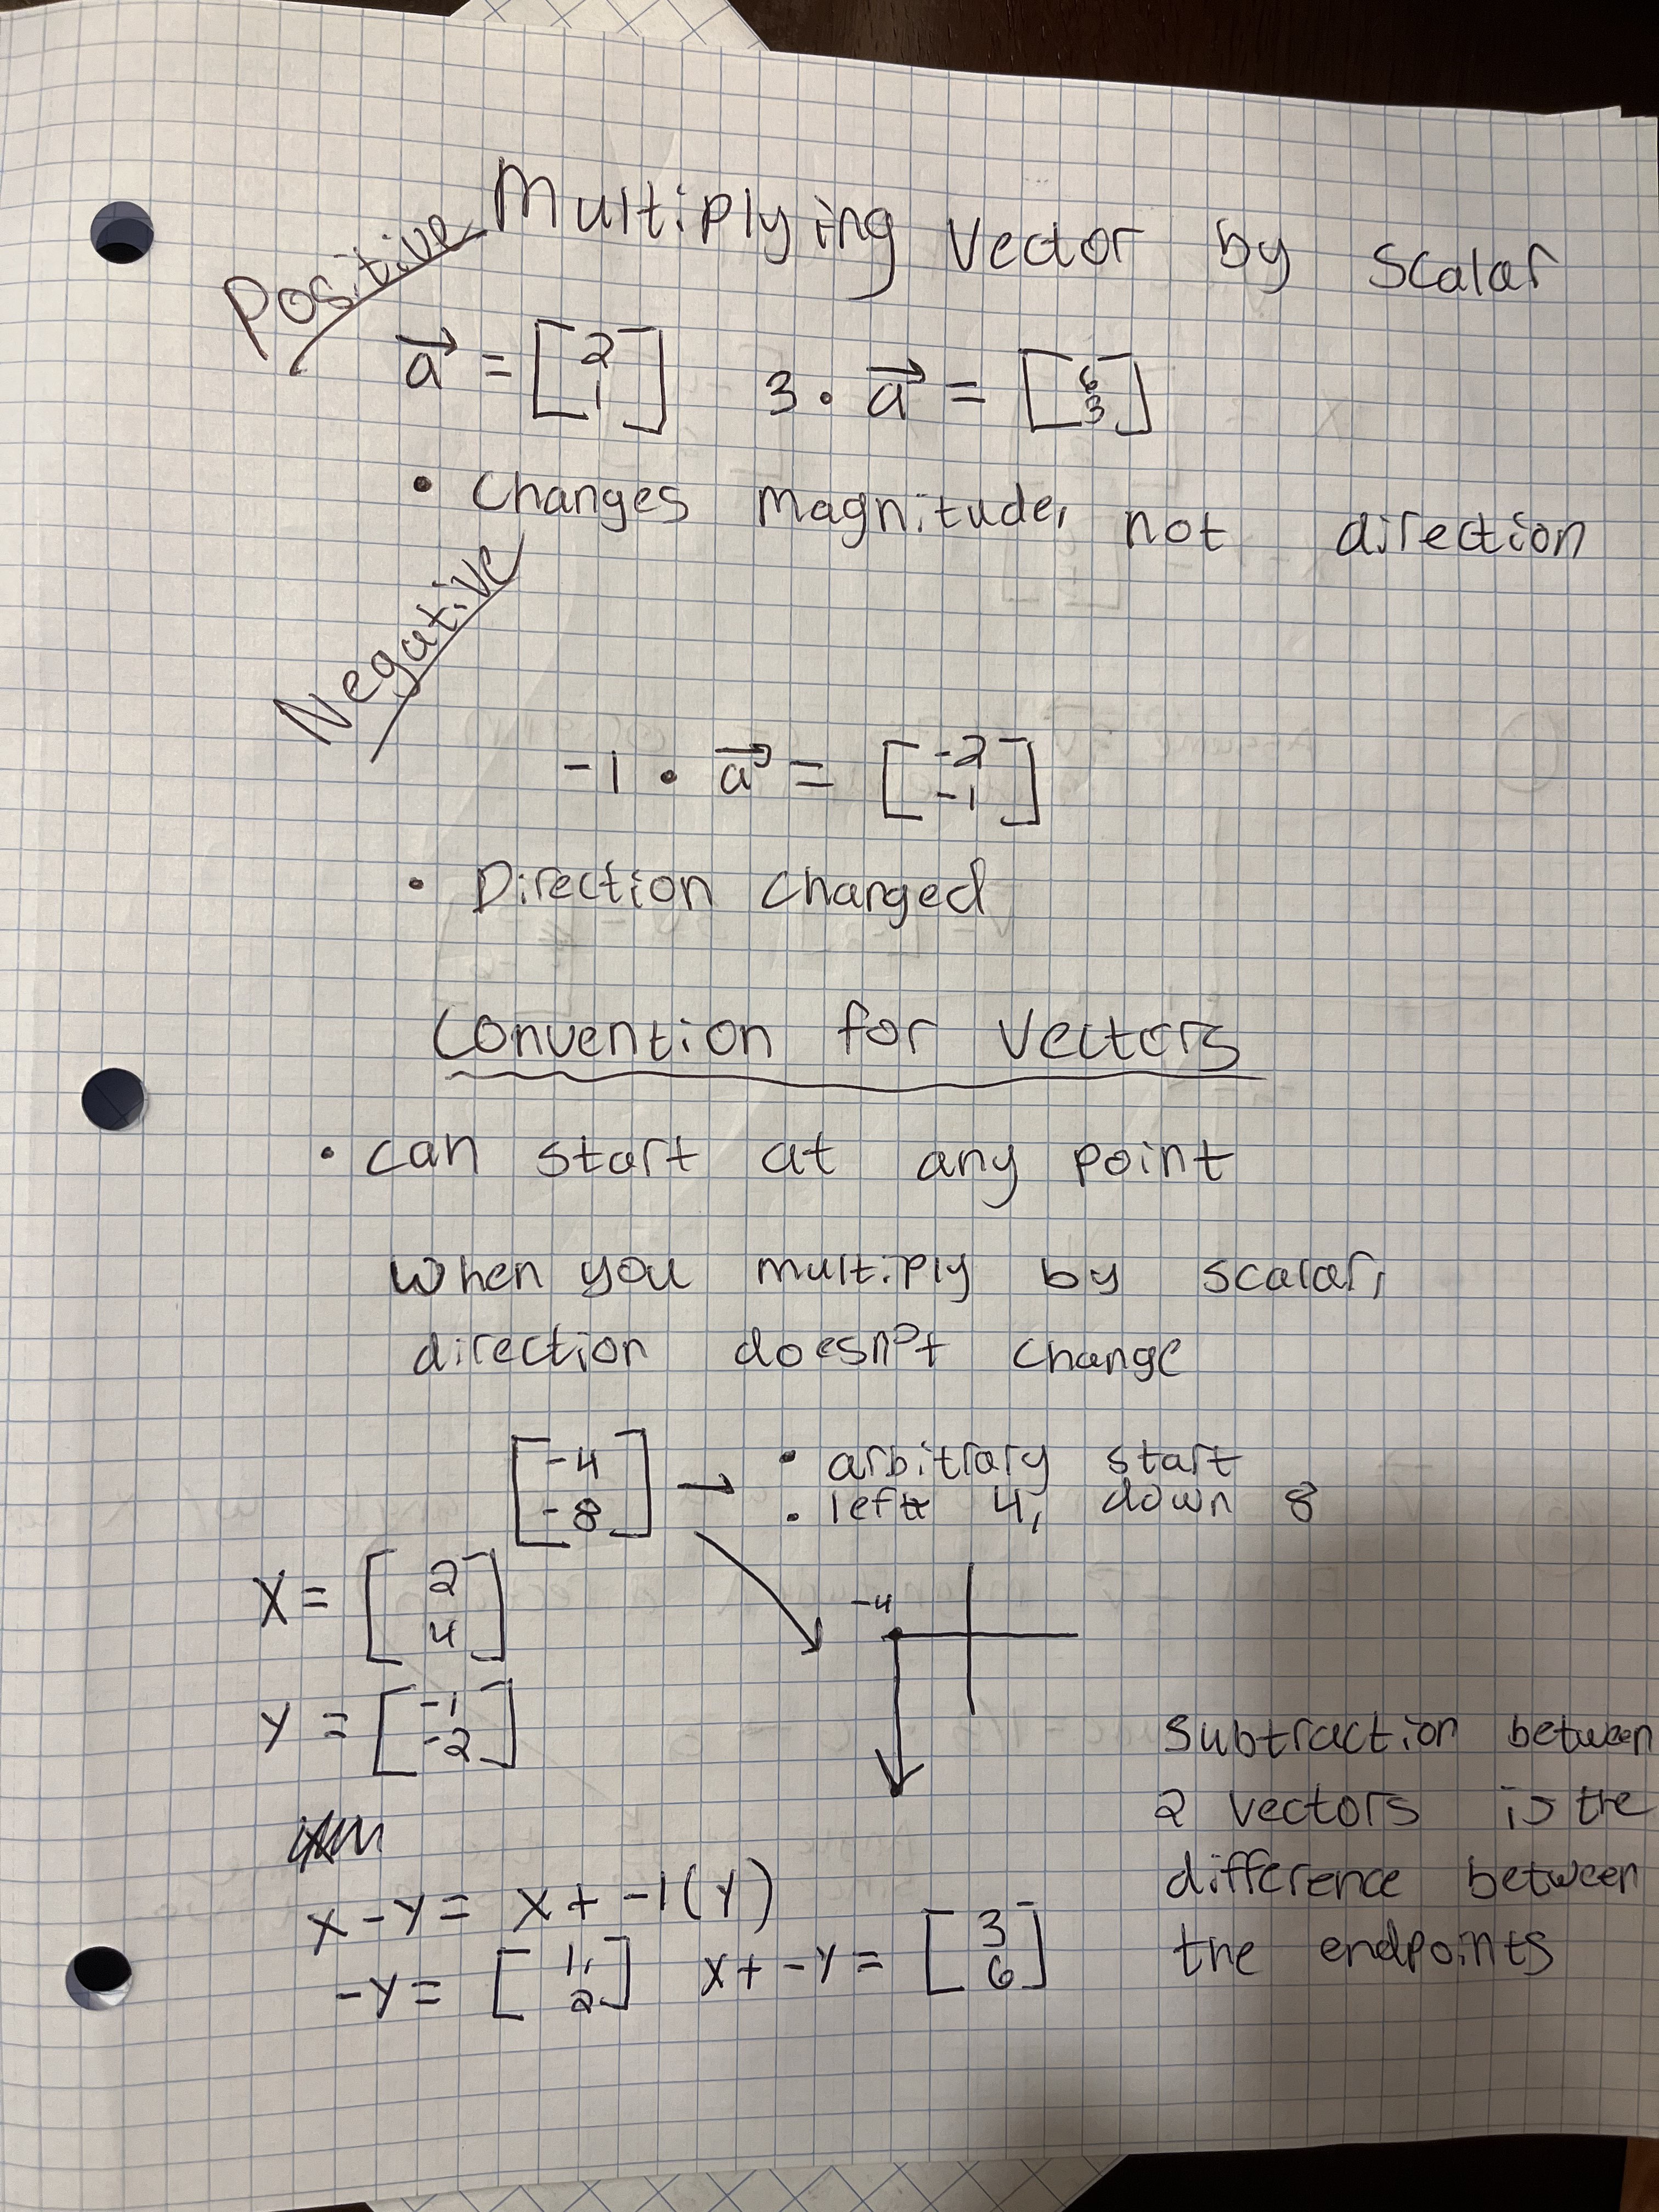 Positive
Multiplying Vector by Scalar
a⃗ = [2 1] 3 · a⃗ = [6 3]
• Changes magnitude, not direction
Negative
-1 · a⃗ = [-2 -1]
• Direction changed
Convention for Vectors
• can start at any point
when you multiply by scalar,
direction doesn't change
[-4 -8] → • arbitrary start
• left 4, down 8
X = [2 4]
-4
Y = [-1 -2]
X - Y = X + -1(Y)
-Y = [1 2] X + -Y = [3 6]
Subtraction between
2 vectors is the
difference between
the endpoints